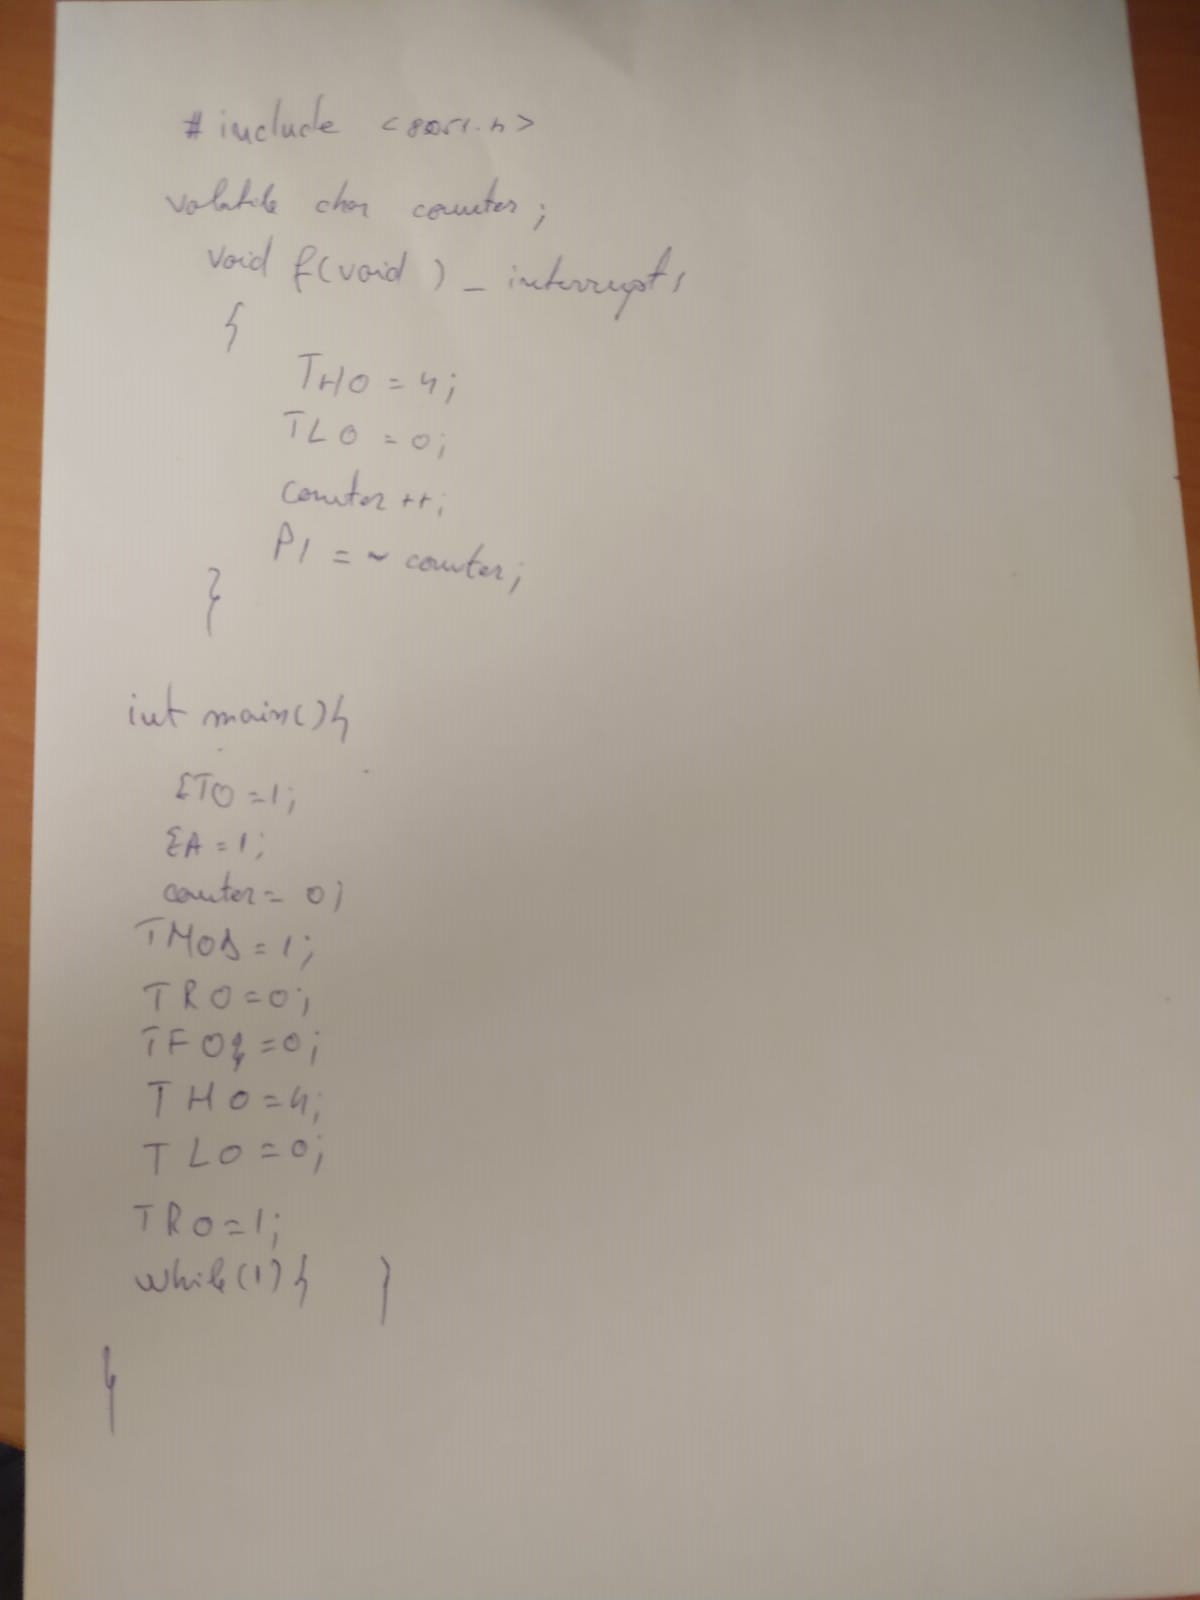 # include <8051.h>
volatile char counter;
void f(void) _interrupt 1
{
TH0 = 4;
TL0 = 0;
counter ++;
P1 = ~ counter;
}
int main(){
ET0 = 1;
EA = 1;
counter = 0;
TMOD = 1;
TR0 = 0;
TF0 = 0;
TH0 = 4;
TL0 = 0;
TR0 = 1;
while(1){ }
}